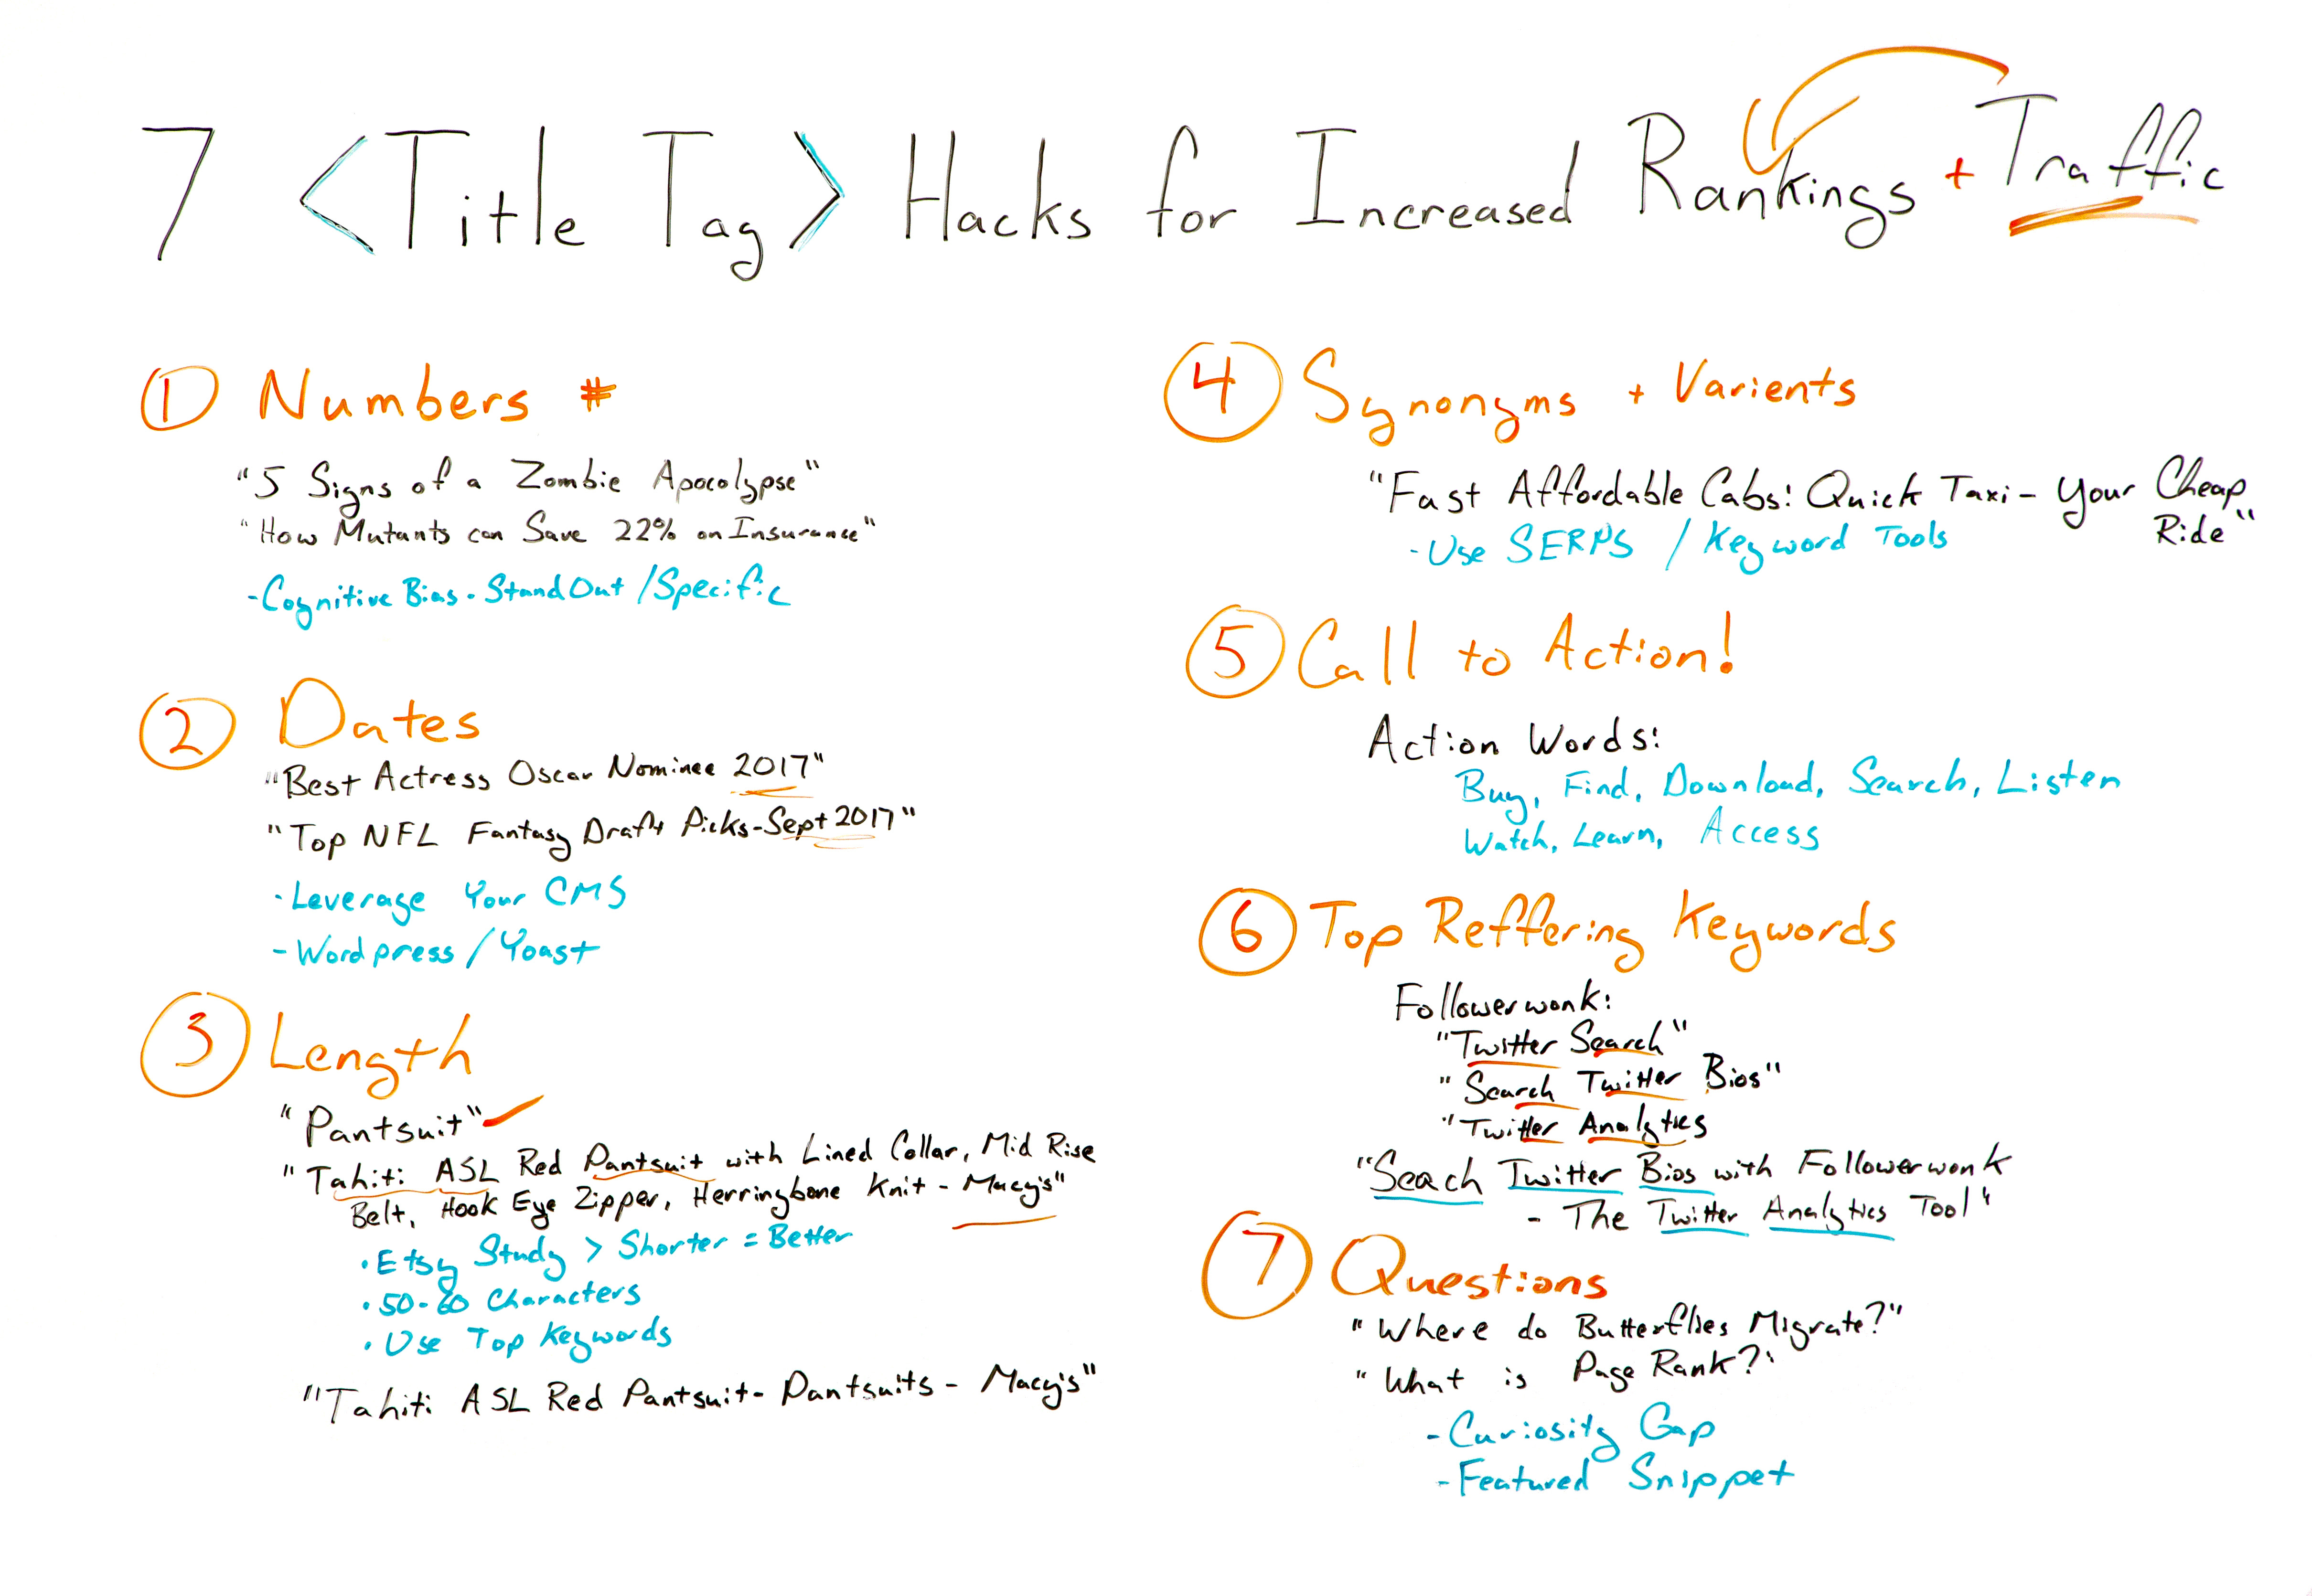 7 <Title Tag> Hacks for Increased Rankings + Traffic
1 Numbers #
"5 Signs of a Zombie Apocolypse"
"How Mutants can Save 22% on Insurance"
-Cognitive Bias - Stand Out / Specific
2 Dates
"Best Actress Oscar Nominee 2017"
"Top NFL Fantasy Draft Picks-Sept 2017"
-Leverage Your CMS
-Wordpress / Yoast
3 Length
"Pantsuit"
"Tahiti ASL Red Pantsuit with Lined Collar, Mid Rise
Belt, Hook Eye Zipper, Herringbone Knit - Macy's"
• Etsy Study > Shorter = Better
• 50-60 Characters
• Use Top Keywords
"Tahiti ASL Red Pantsuit- Pantsuits - Macy's"
4 Synonyms + Varients
"Fast Affordable Cabs: Quick Taxi - Your Cheap
Ride"
-Use SERPS / Keyword Tools
5 Call to Action!
Action Words:
Buy, Find, Download, Search, Listen
Watch, Learn, Access
6 Top Reffering Keywords
Followerwonk:
"Twitter Search"
"Search Twitter Bios"
"Twitter Analytics
"Seach Twitter Bios with Followerwonk
- The Twitter Analytics Tool"
7 Questions
"Where do Butterflies Migrate?"
"What is Page Rank?"
-Curiosity Gap
-Featured Snippet